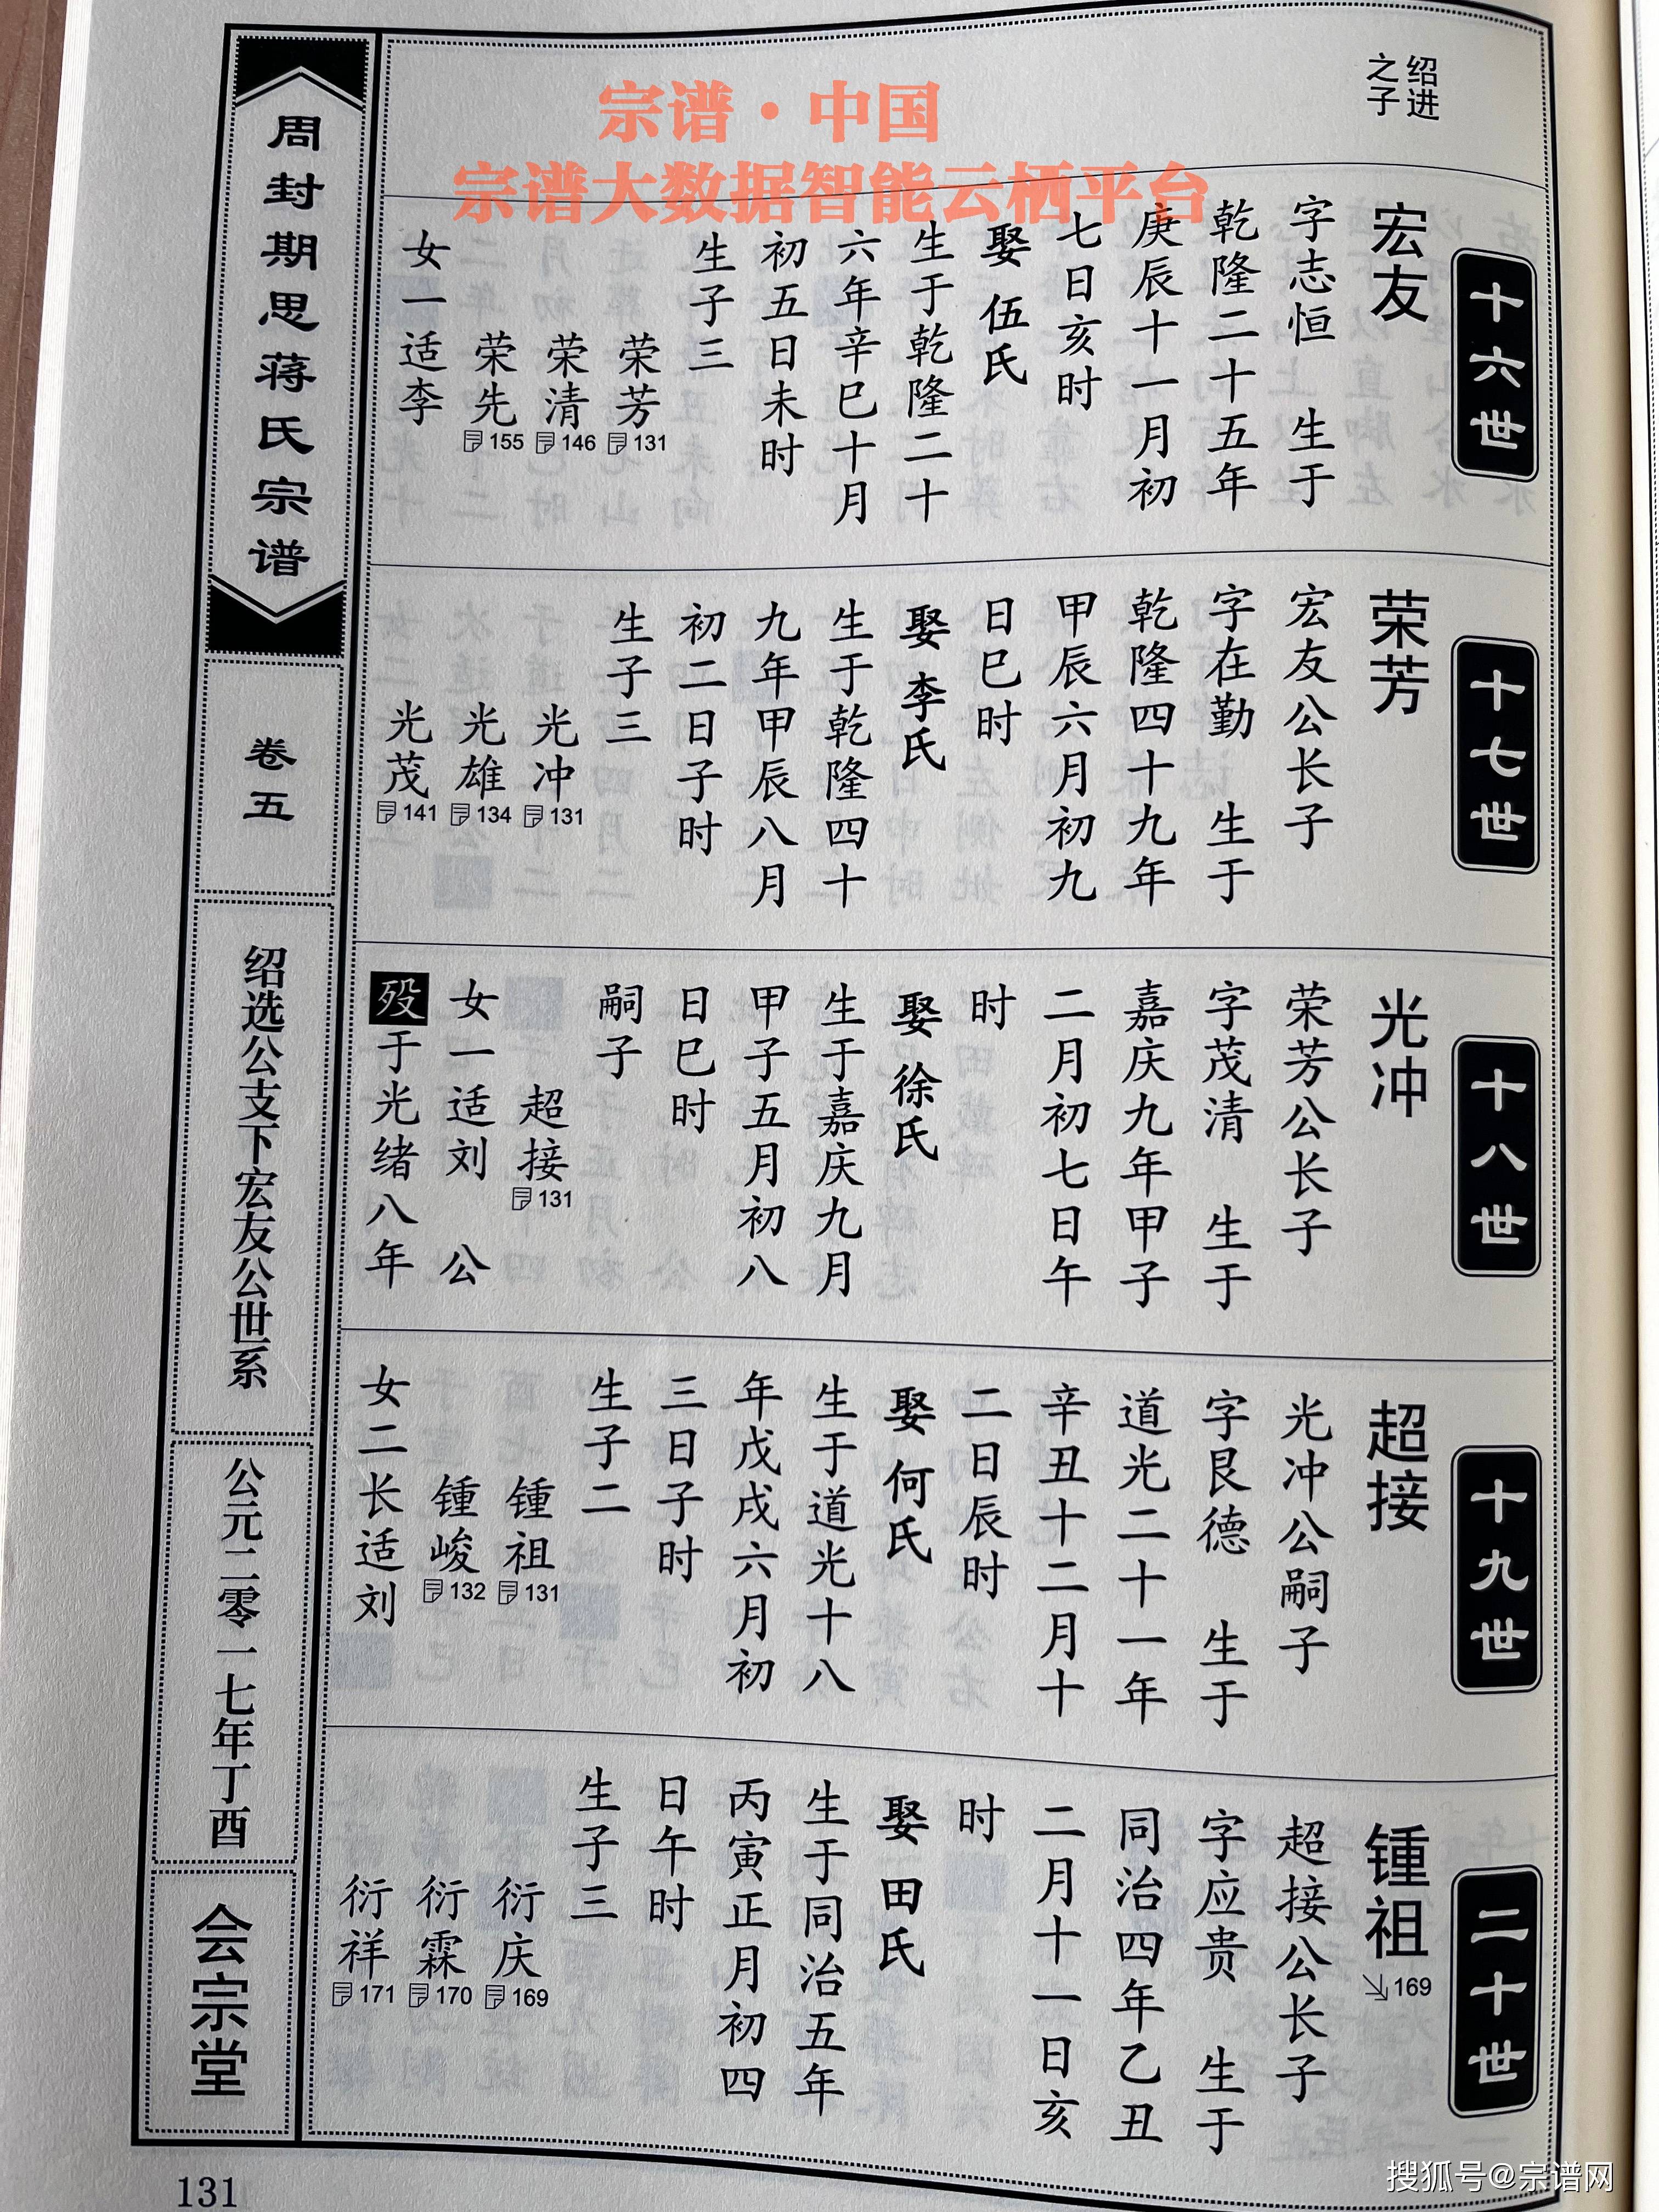 宗谱·中国
宗谱大数据智能云栖平台
绍进
之子
十六世
宏友
字志恒 生于
乾隆二十五年
庚辰十一月初
七日亥时
娶 伍氏
生于乾隆二十
六年辛巳十月
初五日未时
生子三
荣芳 131
荣清 146
荣先 155
女一 适李
十七世
荣芳
宏友公长子
字在勤 生于
乾隆四十九年
甲辰六月初九
日巳时
娶 李氏
生于乾隆四十
九年甲辰八月
初二日子时
生子三
光冲 131
光雄 134
光茂 141
十八世
光冲
荣芳公长子
字茂清 生于
嘉庆九年甲子
二月初七日午
时
娶 徐氏
生于嘉庆九月
甲子五月初八
日巳时
嗣子
超接 131
女一适刘 公
殁于光绪八年
十九世
超接
光冲公嗣子
字艮德 生于
道光二十一年
辛丑十二月十
二日辰时
娶 何氏
生于道光十八
年戊戌六月初
三日子时
生子二
锺祖 131
锺峻 132
女二长适刘
二十世
锺祖 169
超接公长子
字应贵 生于
同治四年乙丑
二月十一日亥
时
娶 田氏
生于同治五年
丙寅正月初四
日午时
生子三
衍庆 169
衍霖 170
衍祥 171
周封期思蒋氏宗谱
卷五
绍选公支下宏友公世系
公元二零一七年丁酉
会宗堂
131
搜狐号@宗谱网